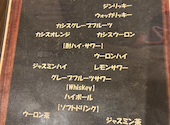 ジンリッキー
ウォッカリッキー
カシスグレープフルーツ
カシスオレンジ カシスウーロン
【酎ハイ・サワー】
ウーロンハイ
ジャスミンハイ レモンサワー
グレープフルーツサワー
【Whiskey】
ハイボール
【ソフトドリンク】
ウーロン茶
ジャスミン茶